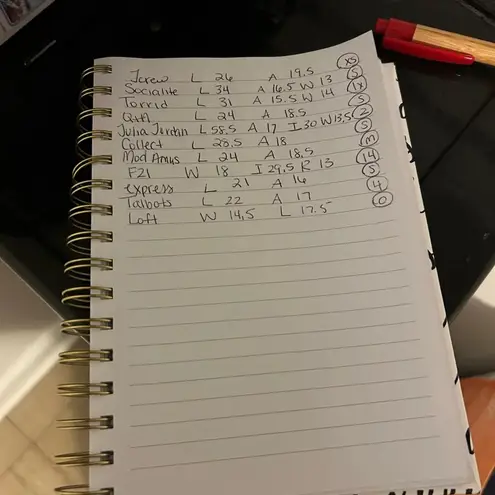 Jcrew L 26 A 19.5 XS
Socialite L 34 A 16.5 W 13 S
Torrid L 31 A 15.5 W 14 1x
L 24 A 18.5 S
Julia Jordan L 58.5 A 17 I 30 W 13.5 2
Collect L 28.5 A 18 S
Mod Amus L 24 A 18.5 M
F21 W 18 I 29.5 R 13 14
express L 21 A 16 S
Talbots L 22 A 17 4
Loft W 14.5 L 17.5 0